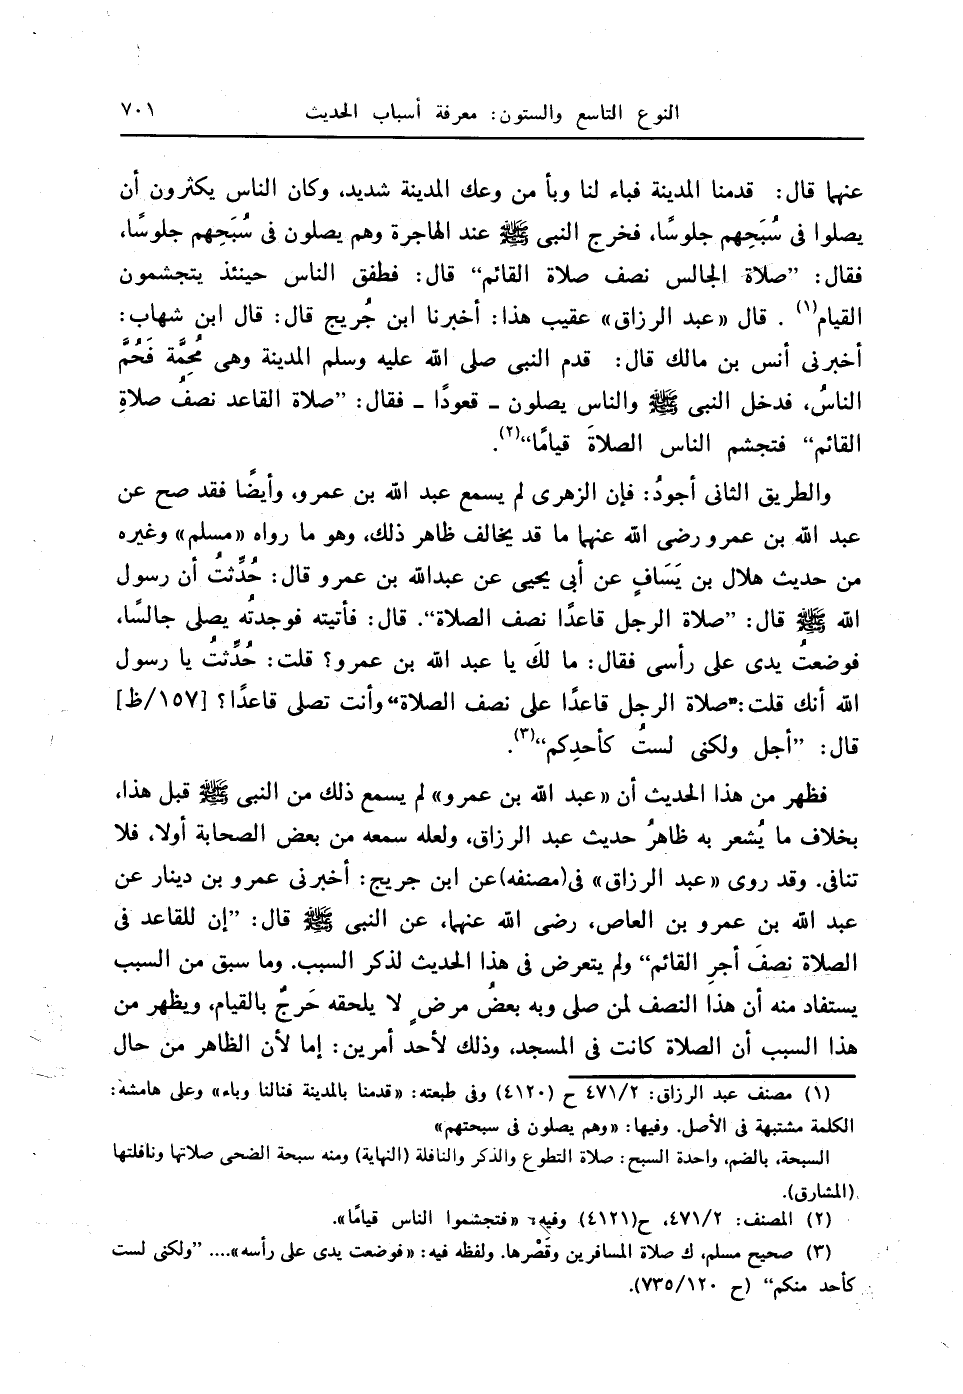 النوع التاسع والستون: معرفة أسباب الحديث ٧٠١
عنهما قال: قدمنا المدينة فباء لنا وبأ من وعك المدينة شديد، وكان الناس يكثرون أن
يصلوا فى سُبَحِهم جلوسًا، فخرج النبى ﷺ عند الهاجرة وهم يصلون فى سُبَحِهم جلوسًا،
فقال: ”صلاة الجالس نصف صلاة القائم“ قال: فطفق الناس حينئذ يتجشمون
القيام(١) . قال «عبد الرزاق» عقيب هذا: أخبرنا ابن جُريج قال: قال ابن شهاب:
أخبرنى أنس بن مالك قال: قدم النبى صلى الله عليه وسلم المدينة وهى مُحِمَّة فَحُمَّ
الناسُ، فدخل النبى ﷺ والناس يصلون ـ قعودًا ـ فقال: ”صلاة القاعد نصفُ صلاةِ
القائم“ فتجشم الناس الصلاةَ قيامًا“(٢).
والطريق الثانى أجودُ: فإن الزهرى لم يسمع عبد الله بن عمرو، وأيضًا فقد صح عن
عبد الله بن عمرو رضى الله عنهما ما قد يخالف ظاهر ذلك، وهو ما رواه «مسلم» وغيره
من حديث هلال بن يَسَافٍ عن أبى يحيى عن عبدالله بن عمرو قال: حُدِّثتُ أن رسول
الله ﷺ قال: ”صلاة الرجل قاعدًا نصف الصلاة“. قال: فأتيته فوجدتُه يصلى جالسًا،
فوضعتُ يدى على رأسى فقال: ما لكَ يا عبد الله بن عمرو؟ قلت: حُدِّثتُ يا رسول
الله أنك قلت: ”صلاة الرجل قاعدًا على نصف الصلاة“ وأنت تصلى قاعدًا؟ [١٥٧/ظ]
قال: ”أجل ولكنى لستُ كأحدِكم“(٣).
فظهر من هذا الحديث أن «عبد الله بن عمرو» لم يسمع ذلك من النبى ﷺ قبل هذا،
بخلاف ما يُشعر به ظاهرُ حديث عبد الرزاق، ولعله سمعه من بعض الصحابة أولا، فلا
تنافى. وقد روى «عبد الرزاق» فى(مصنفه)عن ابن جريج: أخبرنى عمرو بن دينار عن
عبد الله بن عمرو بن العاص، رضى الله عنهما، عن النبى ﷺ قال: ”إن للقاعد فى
الصلاة نصفَ أجرِ القائم“ ولم يتعرض فى هذا الحديث لذكر السبب. وما سبق من السبب
يستفاد منه أن هذا النصف لمن صلى وبه بعضُ مرضٍ لا يلحقه حَرجٌ بالقيام، ويظهر من
هذا السبب أن الصلاة كانت فى المسجد، وذلك لأحد أمرين: إما لأن الظاهر من حال
(١) مصنف عبد الرزاق: ٤٧١/٢ ح (٤١٢٠) وفى طبعته: «قدمنا بالمدينة فنالنا وباء» وعلى هامشه:
الكلمة مشتبهة فى الأصل. وفيها: «وهم يصلون فى سبحتهم»
السبحة، بالضم، واحدة السبح: صلاة التطوع والذكر والنافلة (النهاية) ومنه سبحة الضحى صلاتها ونافلتها
(المشارق).
(٢) المصنف: ٤٧١/٢، ح(٤١٢١) وفيه: «فتجشموا الناس قيامًا».
(٣) صحيح مسلم، ك صلاة المسافرين وقَصْرها. ولفظه فيه: «فوضعت يدى على رأسه».... ”ولكنى لست
كأحد منكم“ (ح ٧٣٥/١٢٠).